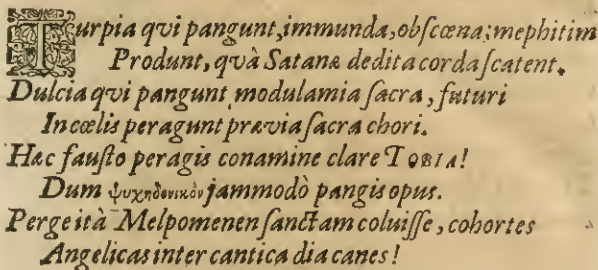 Turpia qvi pangunt, immunda, obſcœna; mephitim
Produnt, qvâ Satanæ dedita corda ſcatent.
Dulcia qvi pangunt modulamia ſacra, futuri
In cœlis peragunt prævia ſacra chori.
Hæc fauſto peragis conamine clare TOBIA!
Dum ψυχηδονικὸν jammodò pangis opus.
Perge ità Melpomenen ſanctam coluiſſe, cohortes
Angelicas inter cantica dia canes!